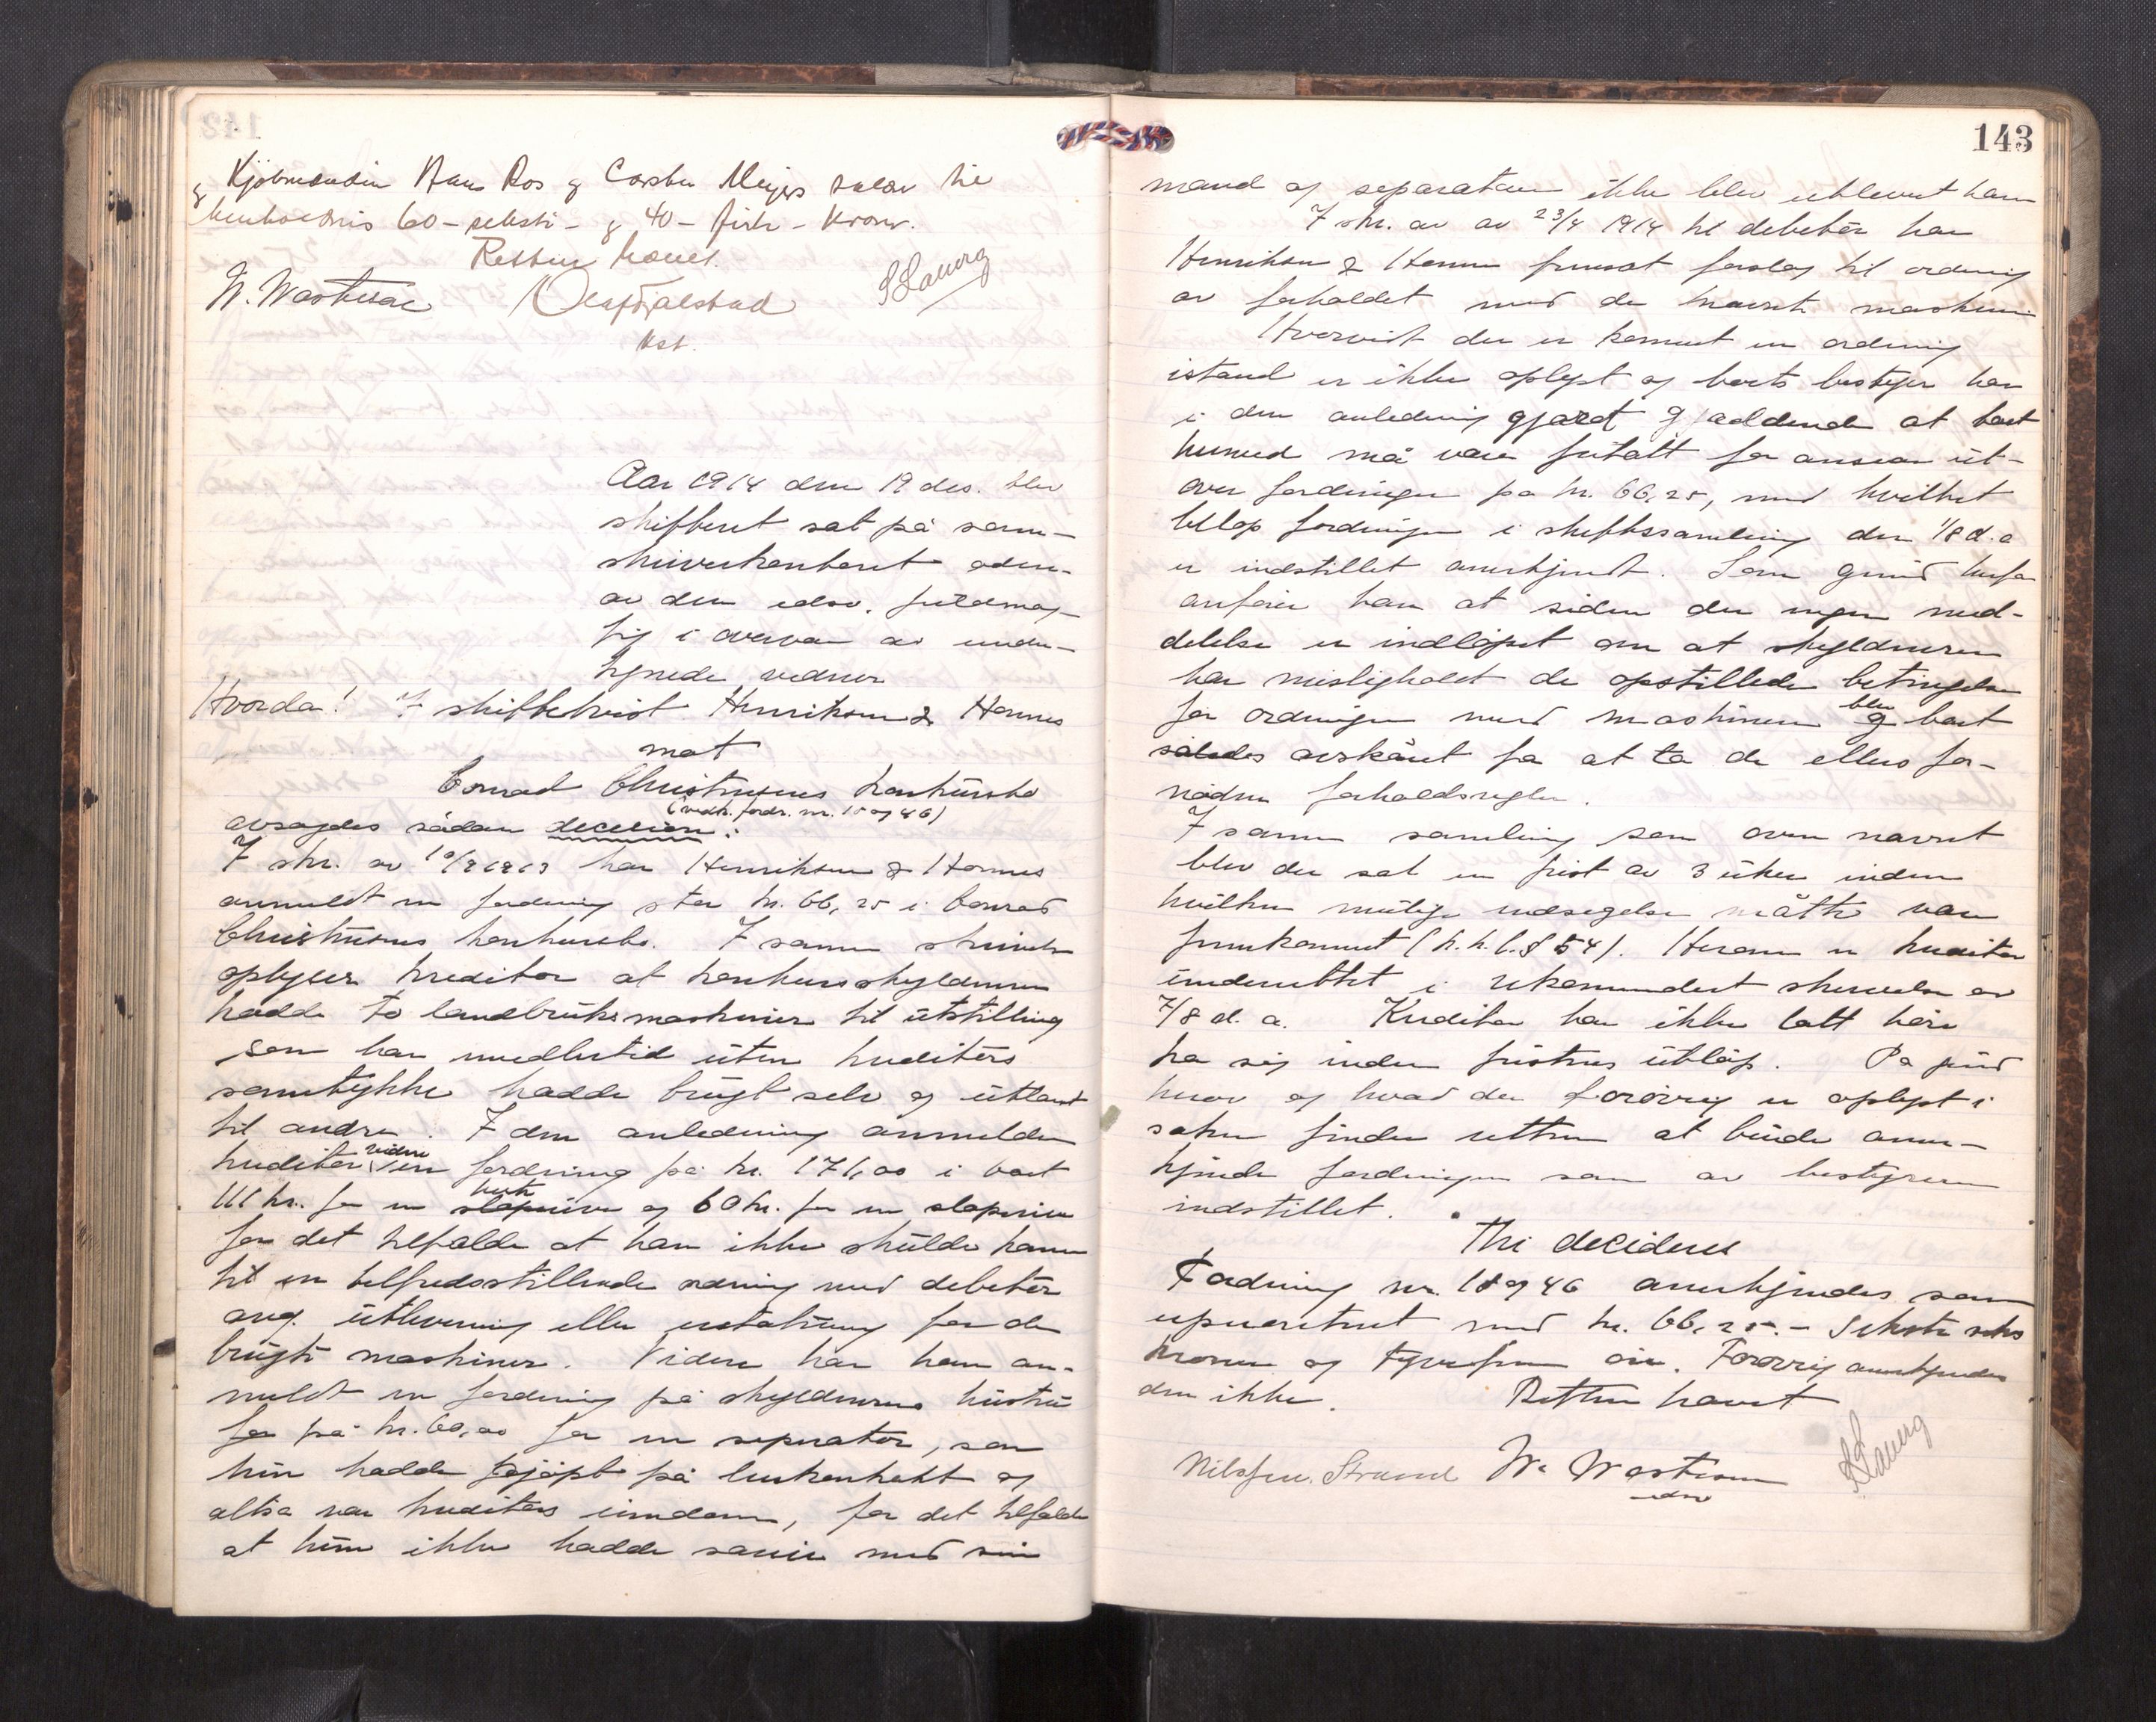 & Kjöbmændin Hans Ros & Carsten Meyer salær til
henholdsvis 60 - seksti - & 40 - firti - Kroner.
Retten hævet.
W. Wastesen Olaf Dalstad S Laurg
kst.
Aar 1914 den 19 des. blev
skifteret sat på soren-
skriverkontoret adm.
av den edsv. fuldmæg-
tig i overvær av under-
tegnede vidner
Hvorda! I skiftetvist Henriksen & Hannes
mot
Conrad Christensens konkursbo
(vedk. fordr. nr. 18 og 46)
avsagdes sådan decision:
I skr. av 10/9 1913 har Henriksen & Hannes
anmeldt en fordring stor kr. 66,25 i Conrad
Christensens konkursbo. I samme skrivelse
oplyser kreditor at konkursskyldneren
hadde to landbruksmaskiner til utstilling
som han imedlertid uten kreditors
samtykke hadde brugt selv og utlaant
til andre. I den anledning anmelder
kreditor videre en fordring på kr. 171,00 i boet
111 kr. for en slåmaskine og 60 kr. for en sloperive
for det tilfælde at han ikke skulde komme
til en tilfredsstillende ordning med debitor
ang. utlevering eller erstatning for de
brugte maskiner. Videre har han an-
meldt en fordring på skyldnerens hustru
for på kr. 60,00 for en separator, som
hun hadde kjøpt på leiekontrakt og
altså var kreditors eiendom, for det tilfælde
at hun ikke hadde særeie med sin
143
mand og separatoren ikke blev utleveret ham
I skr. av av 23/4 1914 til debitor har
Henriksen & Hannes fremsat forslag til ordning
av forholdet med de nævnte maskiner
Hvorvidt der er kommet en ordning
istand er ikke oplyst og boets bestyrer har
i den anledning gjort gjældende at boet
herved må være fritatt for ansvar ut-
over fordringen på kr. 66,25, med hvilket
beløp fordringen i skiftssamling den 1/8 d.a
er indstillet anerkjendt. Som grund herfor
anfører han at siden der ingen med-
delelse er indløpet om at skyldneren
har misligholdt de opstillede betingelser
for ordningen med maskinen blev boet
således avskåret fra at ta de ellers for-
nødne forholdsregler.
I samme samling som oven nævnt
blev der sat en frist av 3 uker inden
hvilken mulige indsigelser måtte være
fremkommet (k.k.l. § 54). Herom er kreditor
underrettet i rekommandert skrivelse av
7/8 d.a. Kreditor har ikke latt høre
fra sig inden fristens utløp. På grund
herav og hvad der forøvrig er oplyst i
saken finder retten at burde aner-
kjende fordringen som av bestyreren
indstillet.
Thi decideres
Fordring nr. 18 og 46 anerkjendes som
uprioritert med kr. 66,25.- Seksti seks
kroner og tyvefem øre. Forøvrig anerkjendes
den ikke. Retten hævet
Nils Jen. Strand W. Wastesen S Laurg
edsv